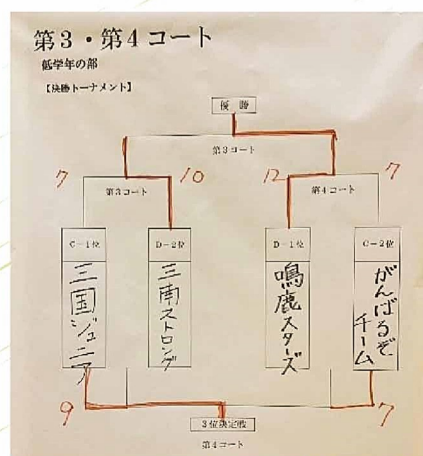 第3・第4コート
低学年の部
【決勝トーナメント】
優勝
第3コート
7 10 12 7
第3コート 第4コート
C-1位 D-2位 D-1位 C-2位
三国ジュニア
三南ストロング
鳴鹿スターズ
がんばるぞ
チーム
9 7
3位決定戦
第4コート